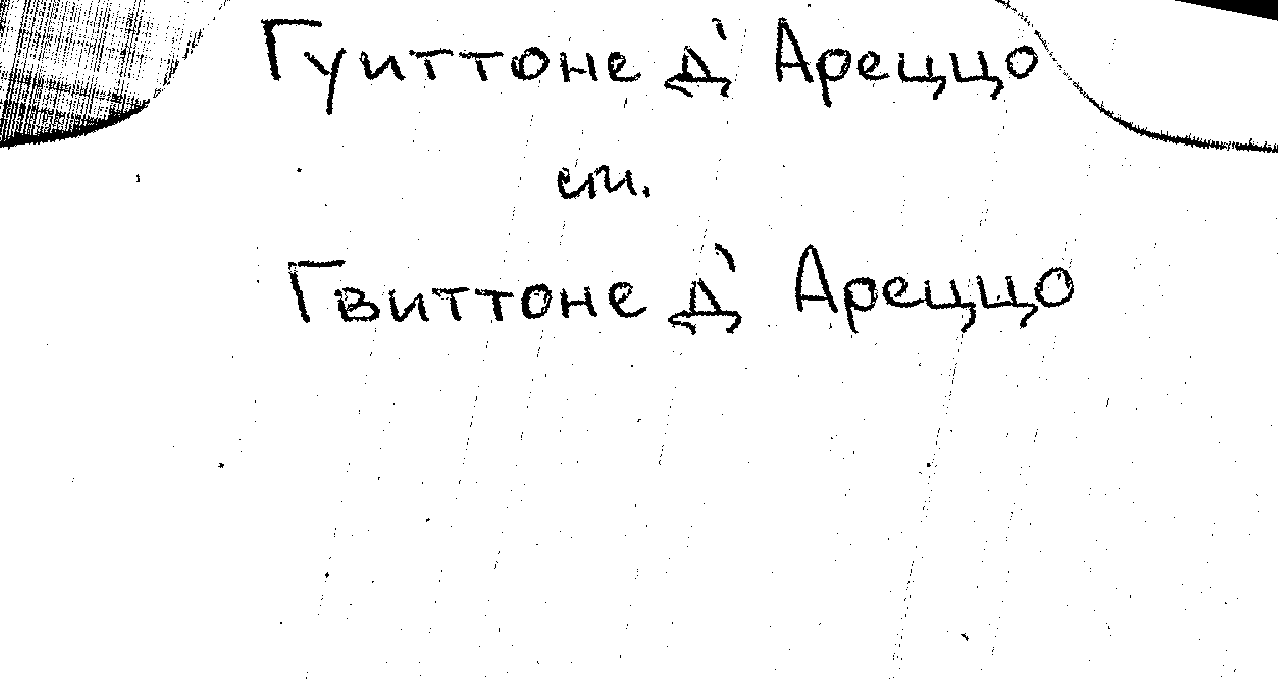 Гуиттоне д' Ареццо
см.
Гвиттоне д' Ареццо